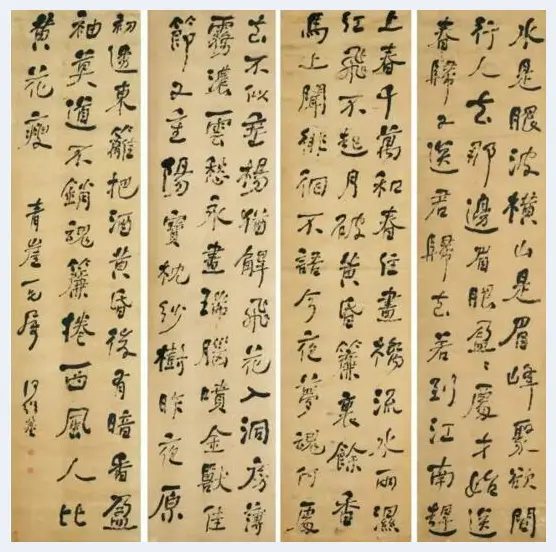 水是眼波橫山是眉峰聚欲問
行人去那邊眉眼盈々處才始送
春歸又送君歸去若到江南趕
上春千萬和春住畫橋流水雨濕
紅飛不起月破黃昏簾裏餘香
馬上聞徘徊不語今夜夢魂何處
去不似垂楊猶解飛花入洞房薄
霧濃雲愁永晝瑞腦噴金獸佳
節又重陽寶枕紗櫥昨夜原
初透東籬把酒黃昏後有暗香盈
袖莫道不銷魂簾捲西風人比
黃花瘦
青崖兄屬
何紹基